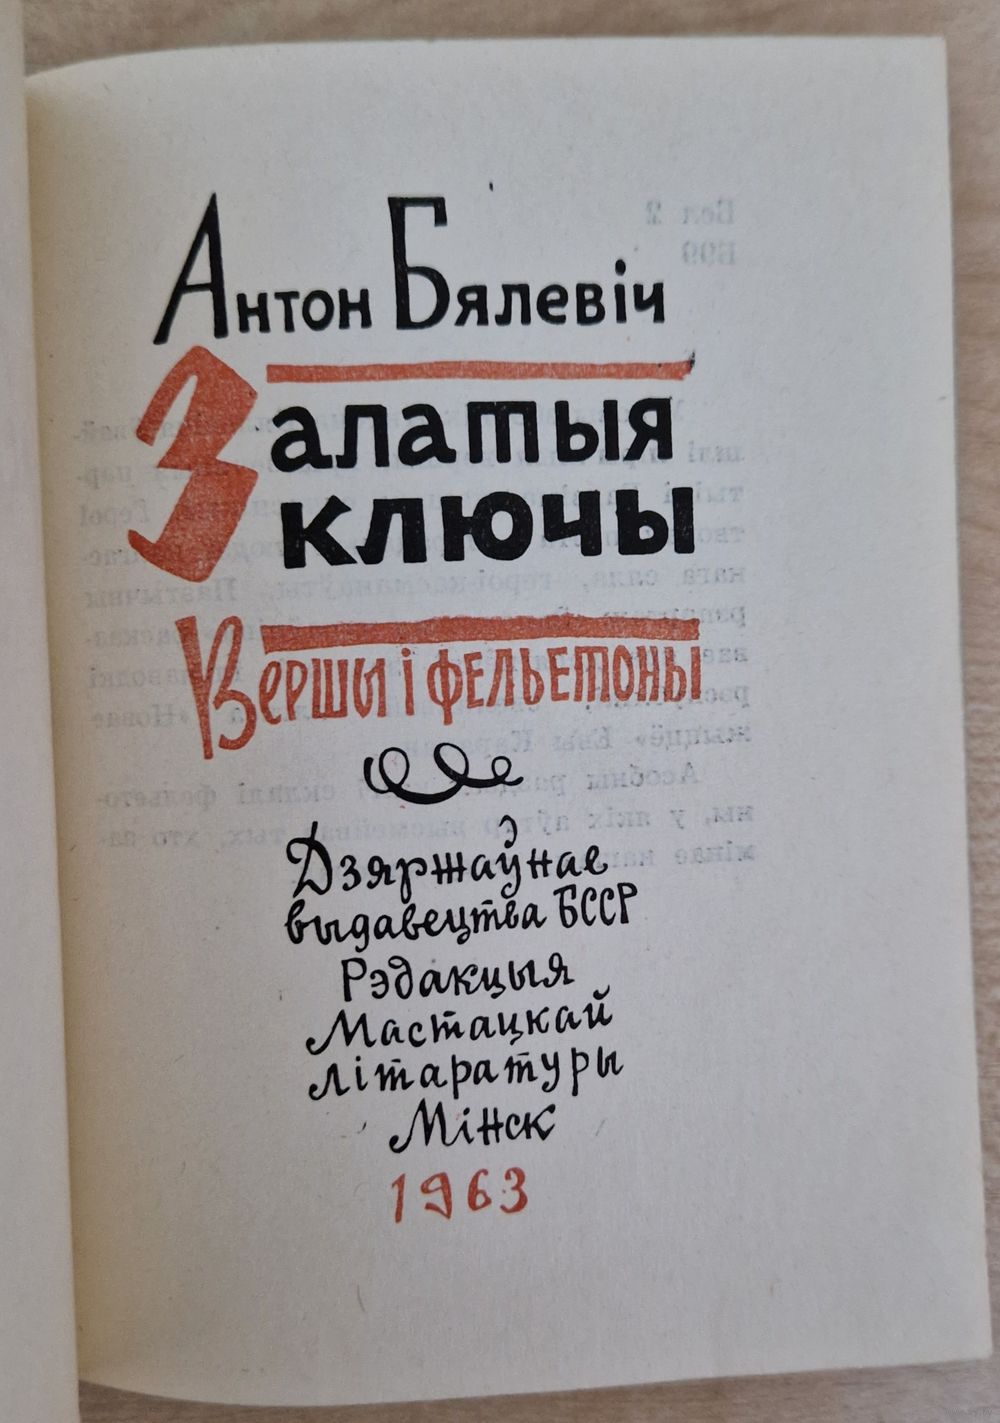 Антон Бялевіч
Залатыя
ключы
Вершы і фельетоны
Дзяржаўнае
выдавецтва БССР
Рэдакцыя
Мастацкай
літаратуры
Мінск
1963